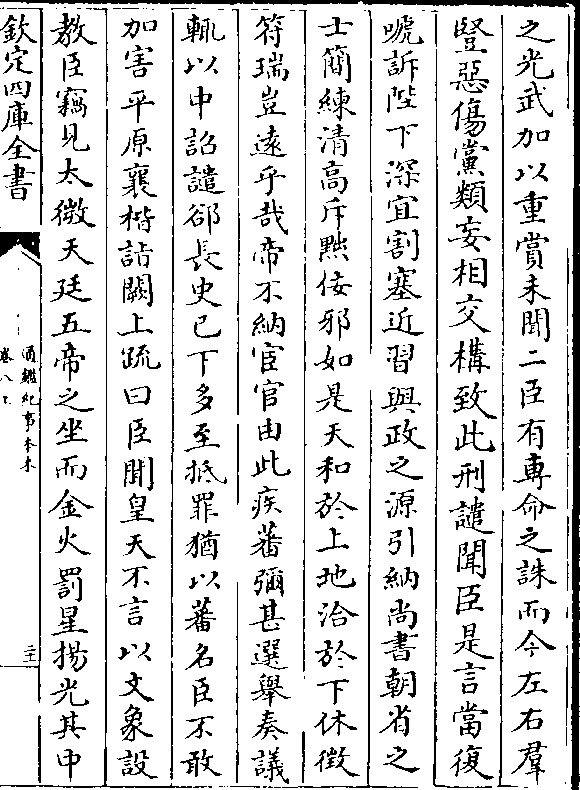 之光武加以重賞未聞二臣有專命之誅而今左右羣
豎惡傷黨類妄相交構致此刑譴聞臣是言當復
嗁訴陛下深宜割塞近習與政之源引納尚書朝省之
士簡練清高斥黜佞邪如是天和於上地洽於下休徵
符瑞豈遠乎哉帝不納宦官由此疾蕃彌甚選舉奏議
輒以中詔譴郤長史已下多至抵罪猶以蕃名臣不敢
加害平原襄楷詣闕上疏曰臣聞皇天不言以文象設
教臣竊見太微天廷五帝之坐而金火罰星揚光其中
欽定四庫全書
通鑑紀事本末
卷八上